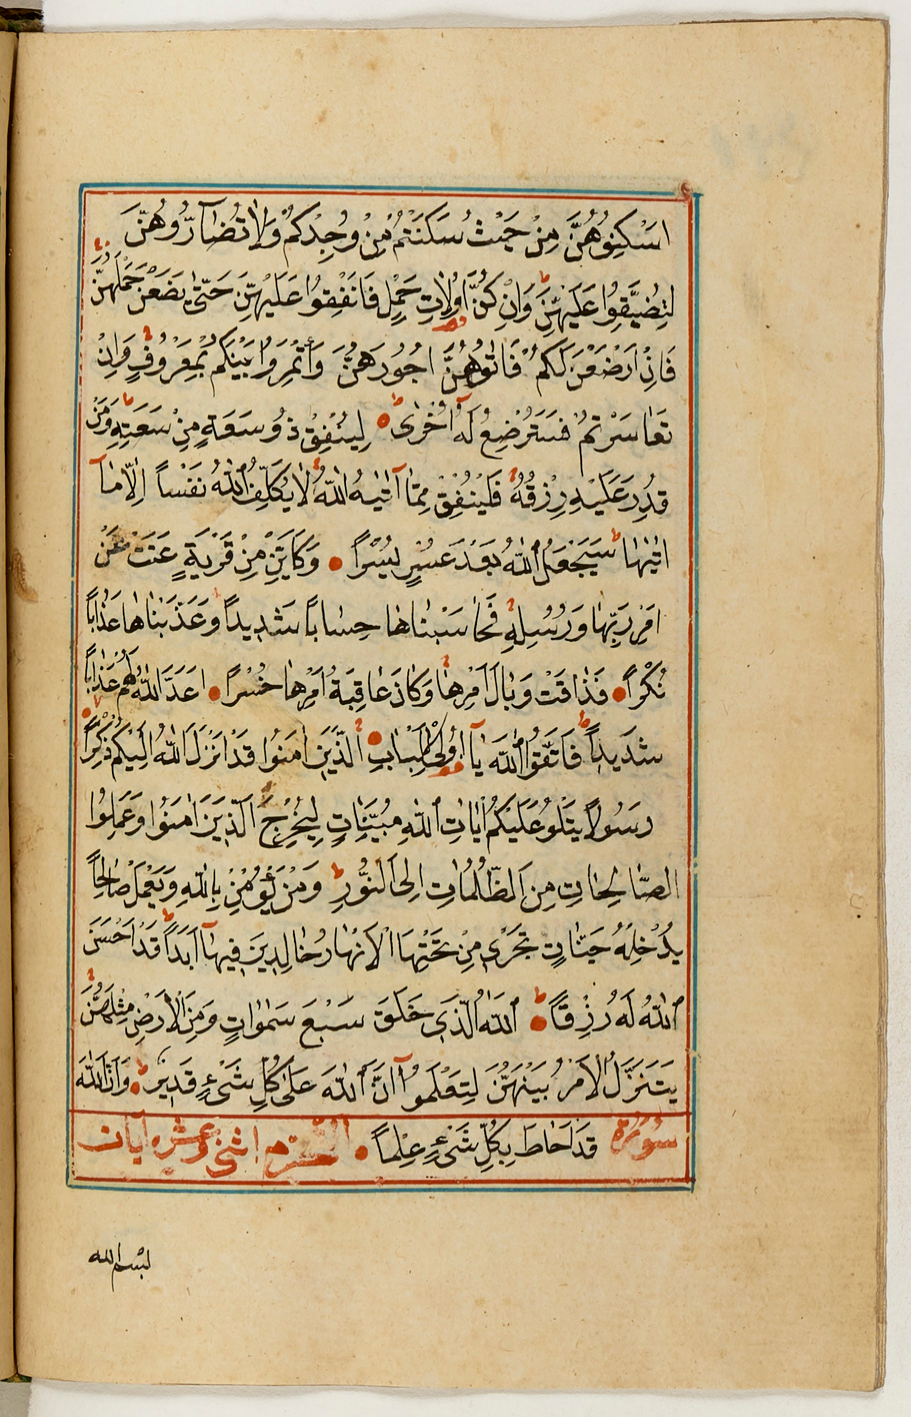 اَسْكِنُوهُنَّ مِنْ حَيْثُ سَكَنْتُمْ مِنْ وُجْدِكُمْ وَلَا تُضَآرُّوهُنَّ
لِتُضَيِّقُوا عَلَيْهِنَّ ط وَاِنْ كُنَّ اُولَاتِ حَمْلٍ فَاَنْفِقُوا عَلَيْهِنَّ حَتّٰى يَضَعْنَ حَمْلَهُنَّ
فَاِنْ اَرْضَعْنَ لَكُمْ فَاٰتُوهُنَّ اُجُورَهُنَّ وَأْتَمِرُوا بَيْنَكُمْ بِمَعْرُوفٍ وَاِنْ
تَعَاسَرْتُمْ فَسَتُرْضِعُ لَهُ اُخْرٰى ط لِيُنْفِقْ ذُو سَعَةٍ مِنْ سَعَتِهِ ط وَمَنْ
قُدِرَ عَلَيْهِ رِزْقُهُ فَلْيُنْفِقْ مِمَّا آتٰيهُ اللّٰهُ لَا يُكَلِّفُ اللّٰهُ نَفْساً اِلَّا مَآ
اٰتٰيهَا ط سَيَجْعَلُ اللّٰهُ بَعْدَ عُسْرٍ يُسْراً وَكَاَيِّنْ مِنْ قَرْيَةٍ عَتَتْ عَنْ
اَمْرِ رَبِّهَا وَرُسُلِهِ فَحَاسَبْنَاهَا حِسَاباً شَدِيداً وَعَذَّبْنَاهَا عَذَاباً
نُكْراً فَذَاقَتْ وَبَالَ اَمْرِهَا وَكَانَ عَاقِبَةُ اَمْرِهَا خُسْراً اَعَدَّ اللّٰهُ لَهُمْ عَذَاباً
شَدِيداً ط فَاتَّقُوا اللّٰهَ يَآ اُولِي الْاَلْبَابِ اَلَّذِينَ اٰمَنُوا قَدْ اَنْزَلَ اللّٰهُ اِلَيْكُمْ ذِكْراً
رَسُولاً يَتْلُو عَلَيْكُمْ اٰيَاتِ اللّٰهِ مُبَيِّنَاتٍ لِيُخْرِجَ الَّذِينَ اٰمَنُوا وَعَمِلُوا
الصَّالِحَاتِ مِنَ الظُّلُمَاتِ اِلَى النُّورِ ط وَمَنْ يُؤْمِنْ بِاللّٰهِ وَيَعْمَلْ صَالِحاً
يُدْخِلْهُ جَنَّاتٍ تَجْرِي مِنْ تَحْتِهَا الْاَنْهَارُ خَالِدِينَ فِيهَآ اَبَداً ط قَدْ اَحْسَنَ
اللّٰهُ لَهُ رِزْقاً ط اَللّٰهُ الَّذِي خَلَقَ سَبْعَ سَمٰوَاتٍ وَمِنَ الْاَرْضِ مِثْلَهُنَّ
يَتَنَزَّلُ الْاَمْرُ بَيْنَهُنَّ لِتَعْلَمُوآ اَنَّ اللّٰهَ عَلٰى كُلِّ شَيْءٍ قَدِيرٌ ط وَاَنَّ اللّٰهَ
قَدْ اَحَاطَ بِكُلِّ شَيْءٍ عِلْماً سُورَةُ التَّحْرِيمِ اثنى عشره آيات
بسم الله